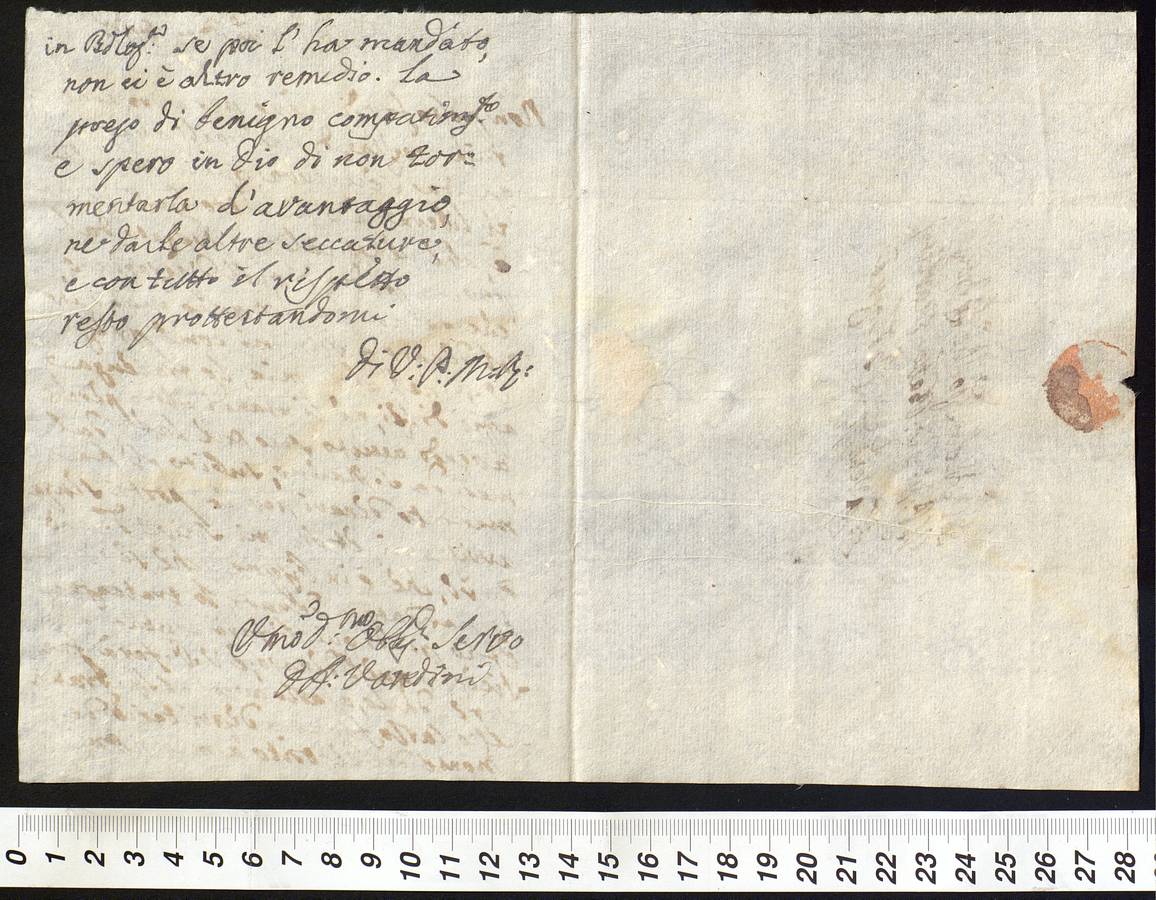 in Bolog:ª se poi l'ha mandato,
non ci è altro remedio. La
prego di benigno compatim:to
e spero in Dio di non tor=
mentarla d'avantaggio,
ne darle altre seccature,
e con tutto il rispetto
resto prottestandomi
di V: P: M: R:
Vmo D:mo Obb: Servo
Ant: Vandini
0 1 2 3 4 5 6 7 8 9 10 11 12 13 14 15 16 17 18 19 20 21 22 23 24 25 26 27 28